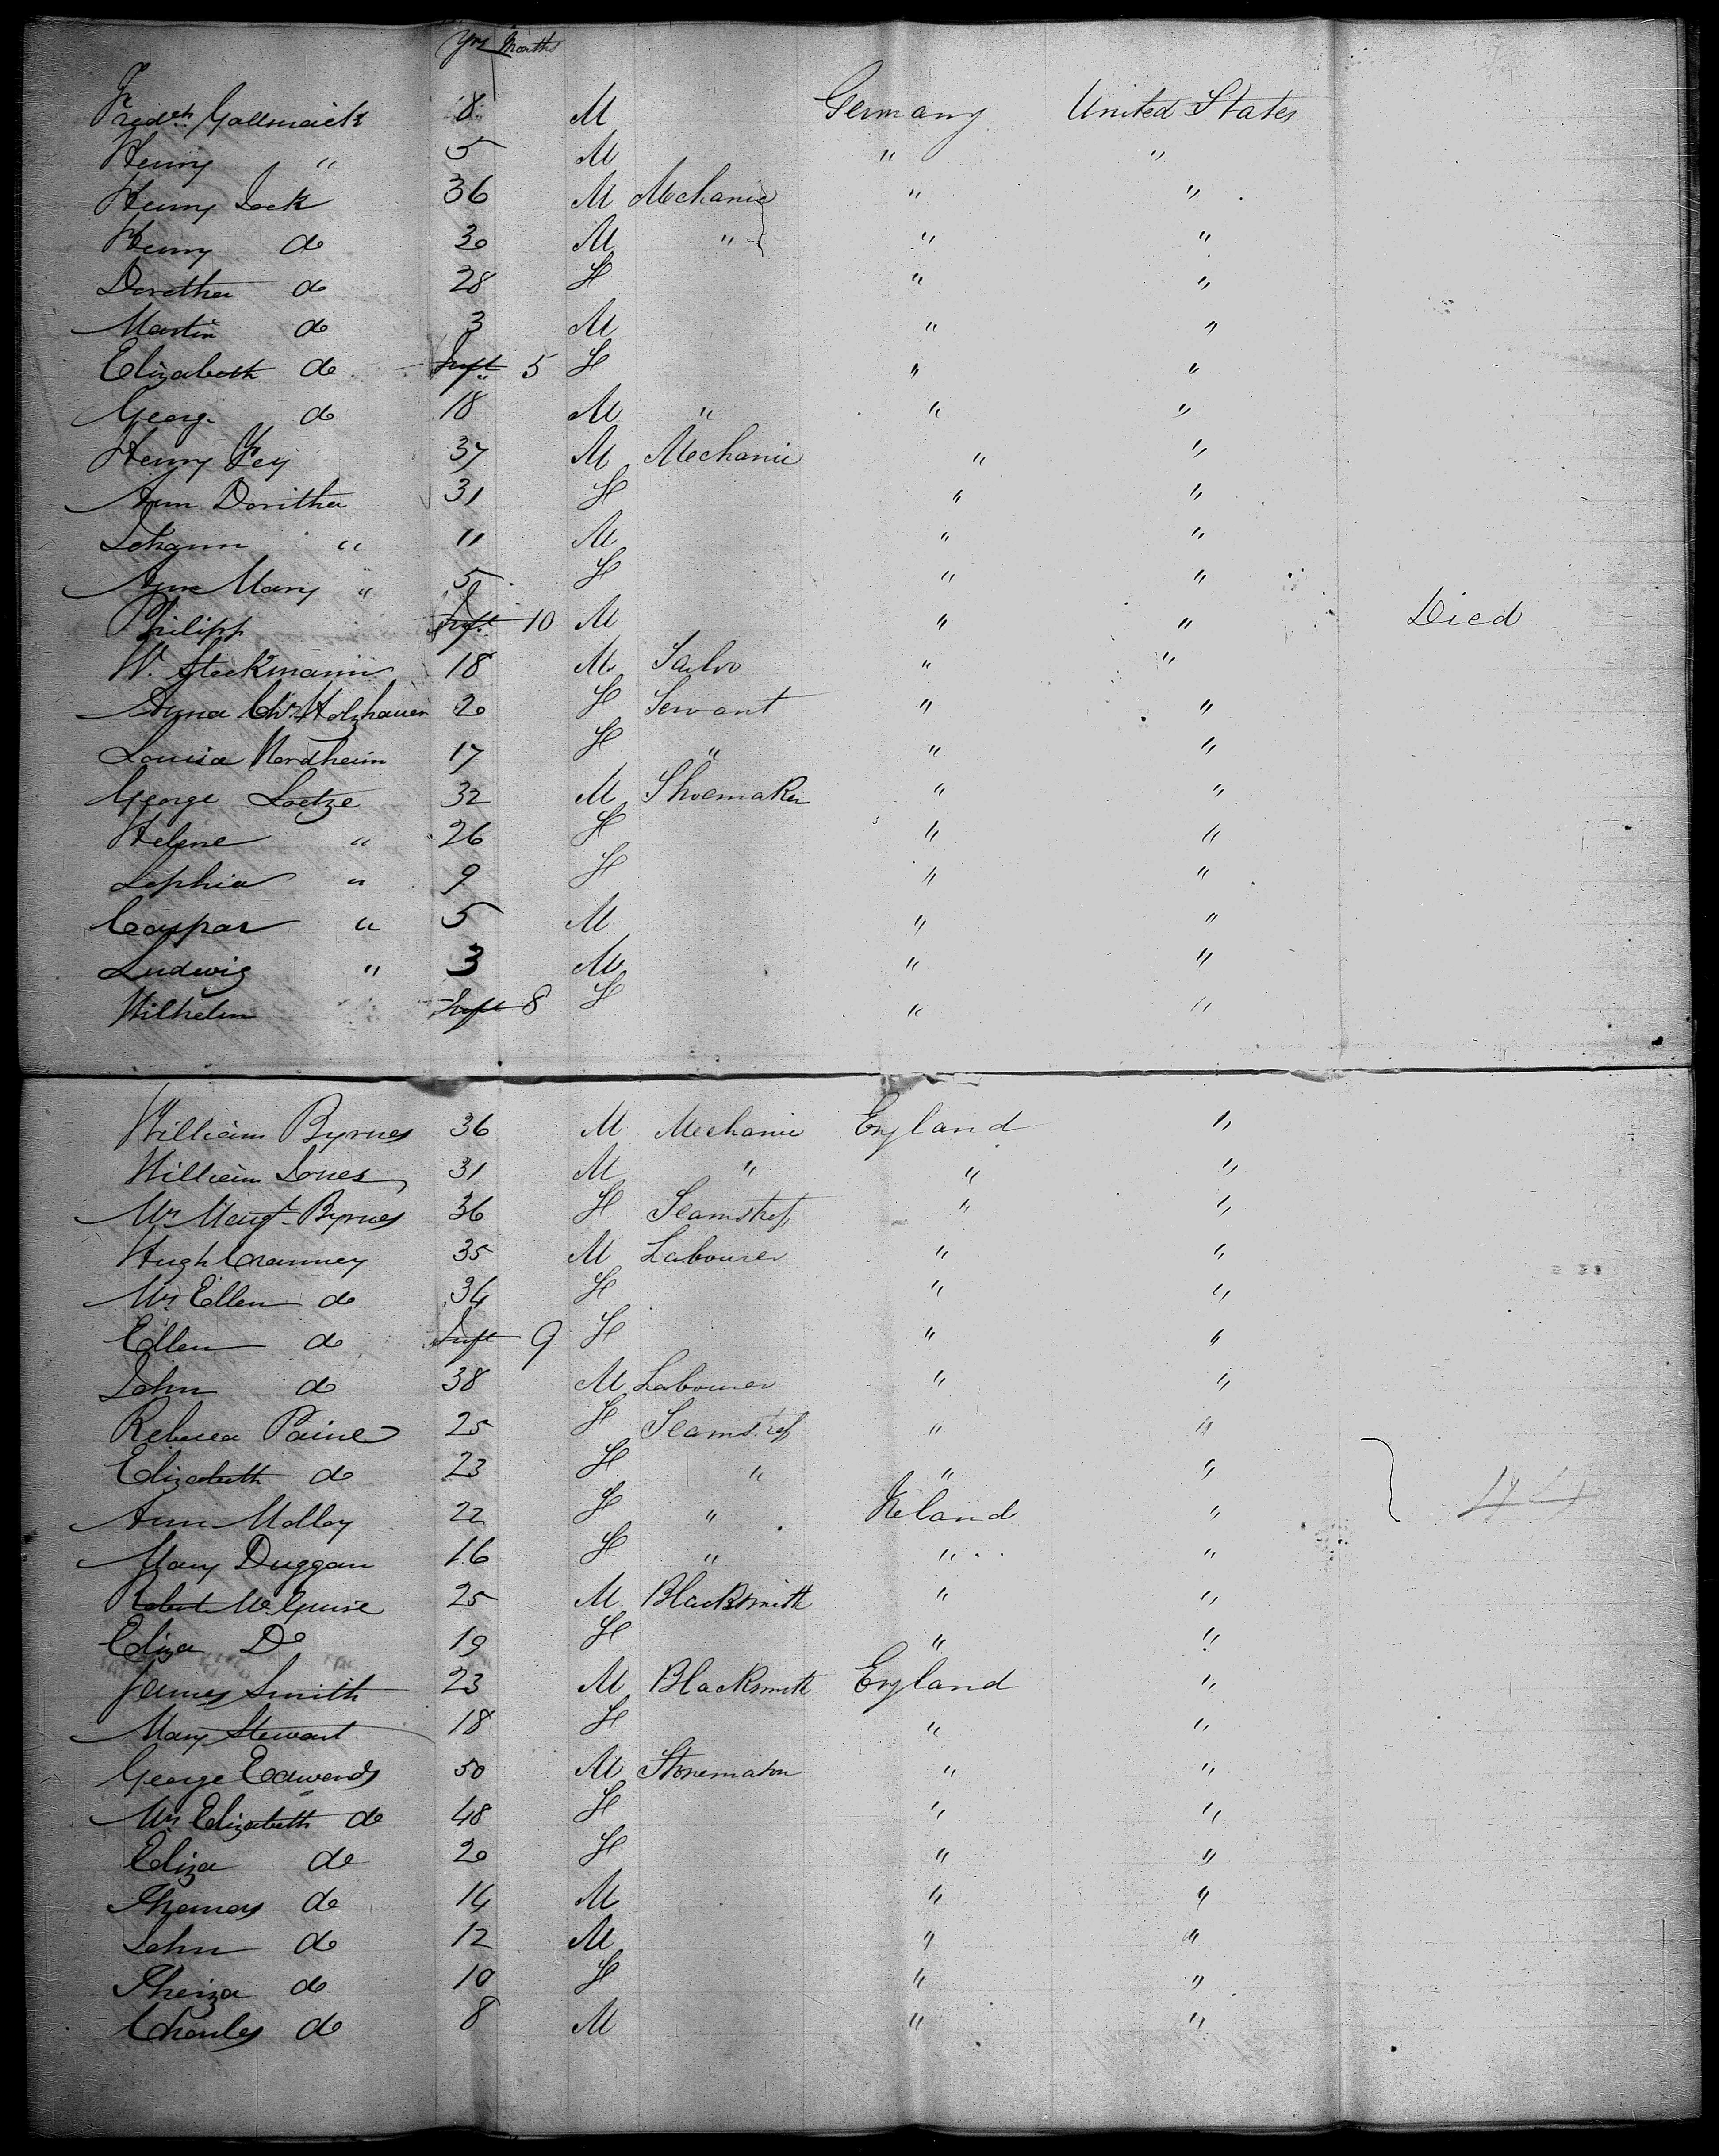 Yrs Months
Fredch Gallmeick 8 M Germany United States
Henry " 5 M " "
Henry Jock 36 M Mechanic " "
Henry do 30 M " " "
Dorothea do 28 F " "
Martin do 3 M " "
Elizabeth do Inft 5 F " "
Georg do 18 M " " "
Henry Fey 37 M Mechanic " "
Ann Doritha 31 F " "
Johann " 11 M " "
Ann Mary " 5 F " "
Philipp Inft 10 M " " Died
W. Steckmann 18 M " "
Anna Chr. Holzhauer 20 F Servant " "
Louisa Nordheim 17 F " " "
George Loetze 32 M Shoemaker " "
Helene " 26 F " "
Sophia " 9 F " "
Caspar " 5 M " "
Ludwig " 3 M " "
Wilhelm Inft 8 F " "
William Byrnes 36 M Mechanic England "
William Jones 31 M " " "
Mrs Margt Byrnes 36 F Seamstress " "
Hugh Cranney 35 M Labourer " "
Mrs Ellen do 34 F " "
Ellen do Inft 9 F " "
John do 38 M Labourer " "
Rebecca Paine 25 F Seamstress " "
Elizabeth do 23 F " " "
Ann Molloy 22 F " Ireland " 44
Mary Duggan 16 F " " "
Robert McGuire 25 M Blacksmith " "
Eliza Do 19 F " "
James Smith 23 M Blacksmith England "
Mary Stewart 18 F " "
George Edwards 50 M Stonemason " "
Mrs Elizabeth do 48 F " "
Eliza do 20 F " "
Thomas do 14 M " "
John do 12 M " "
Theiza do 10 F " "
Charles do 8 M " "